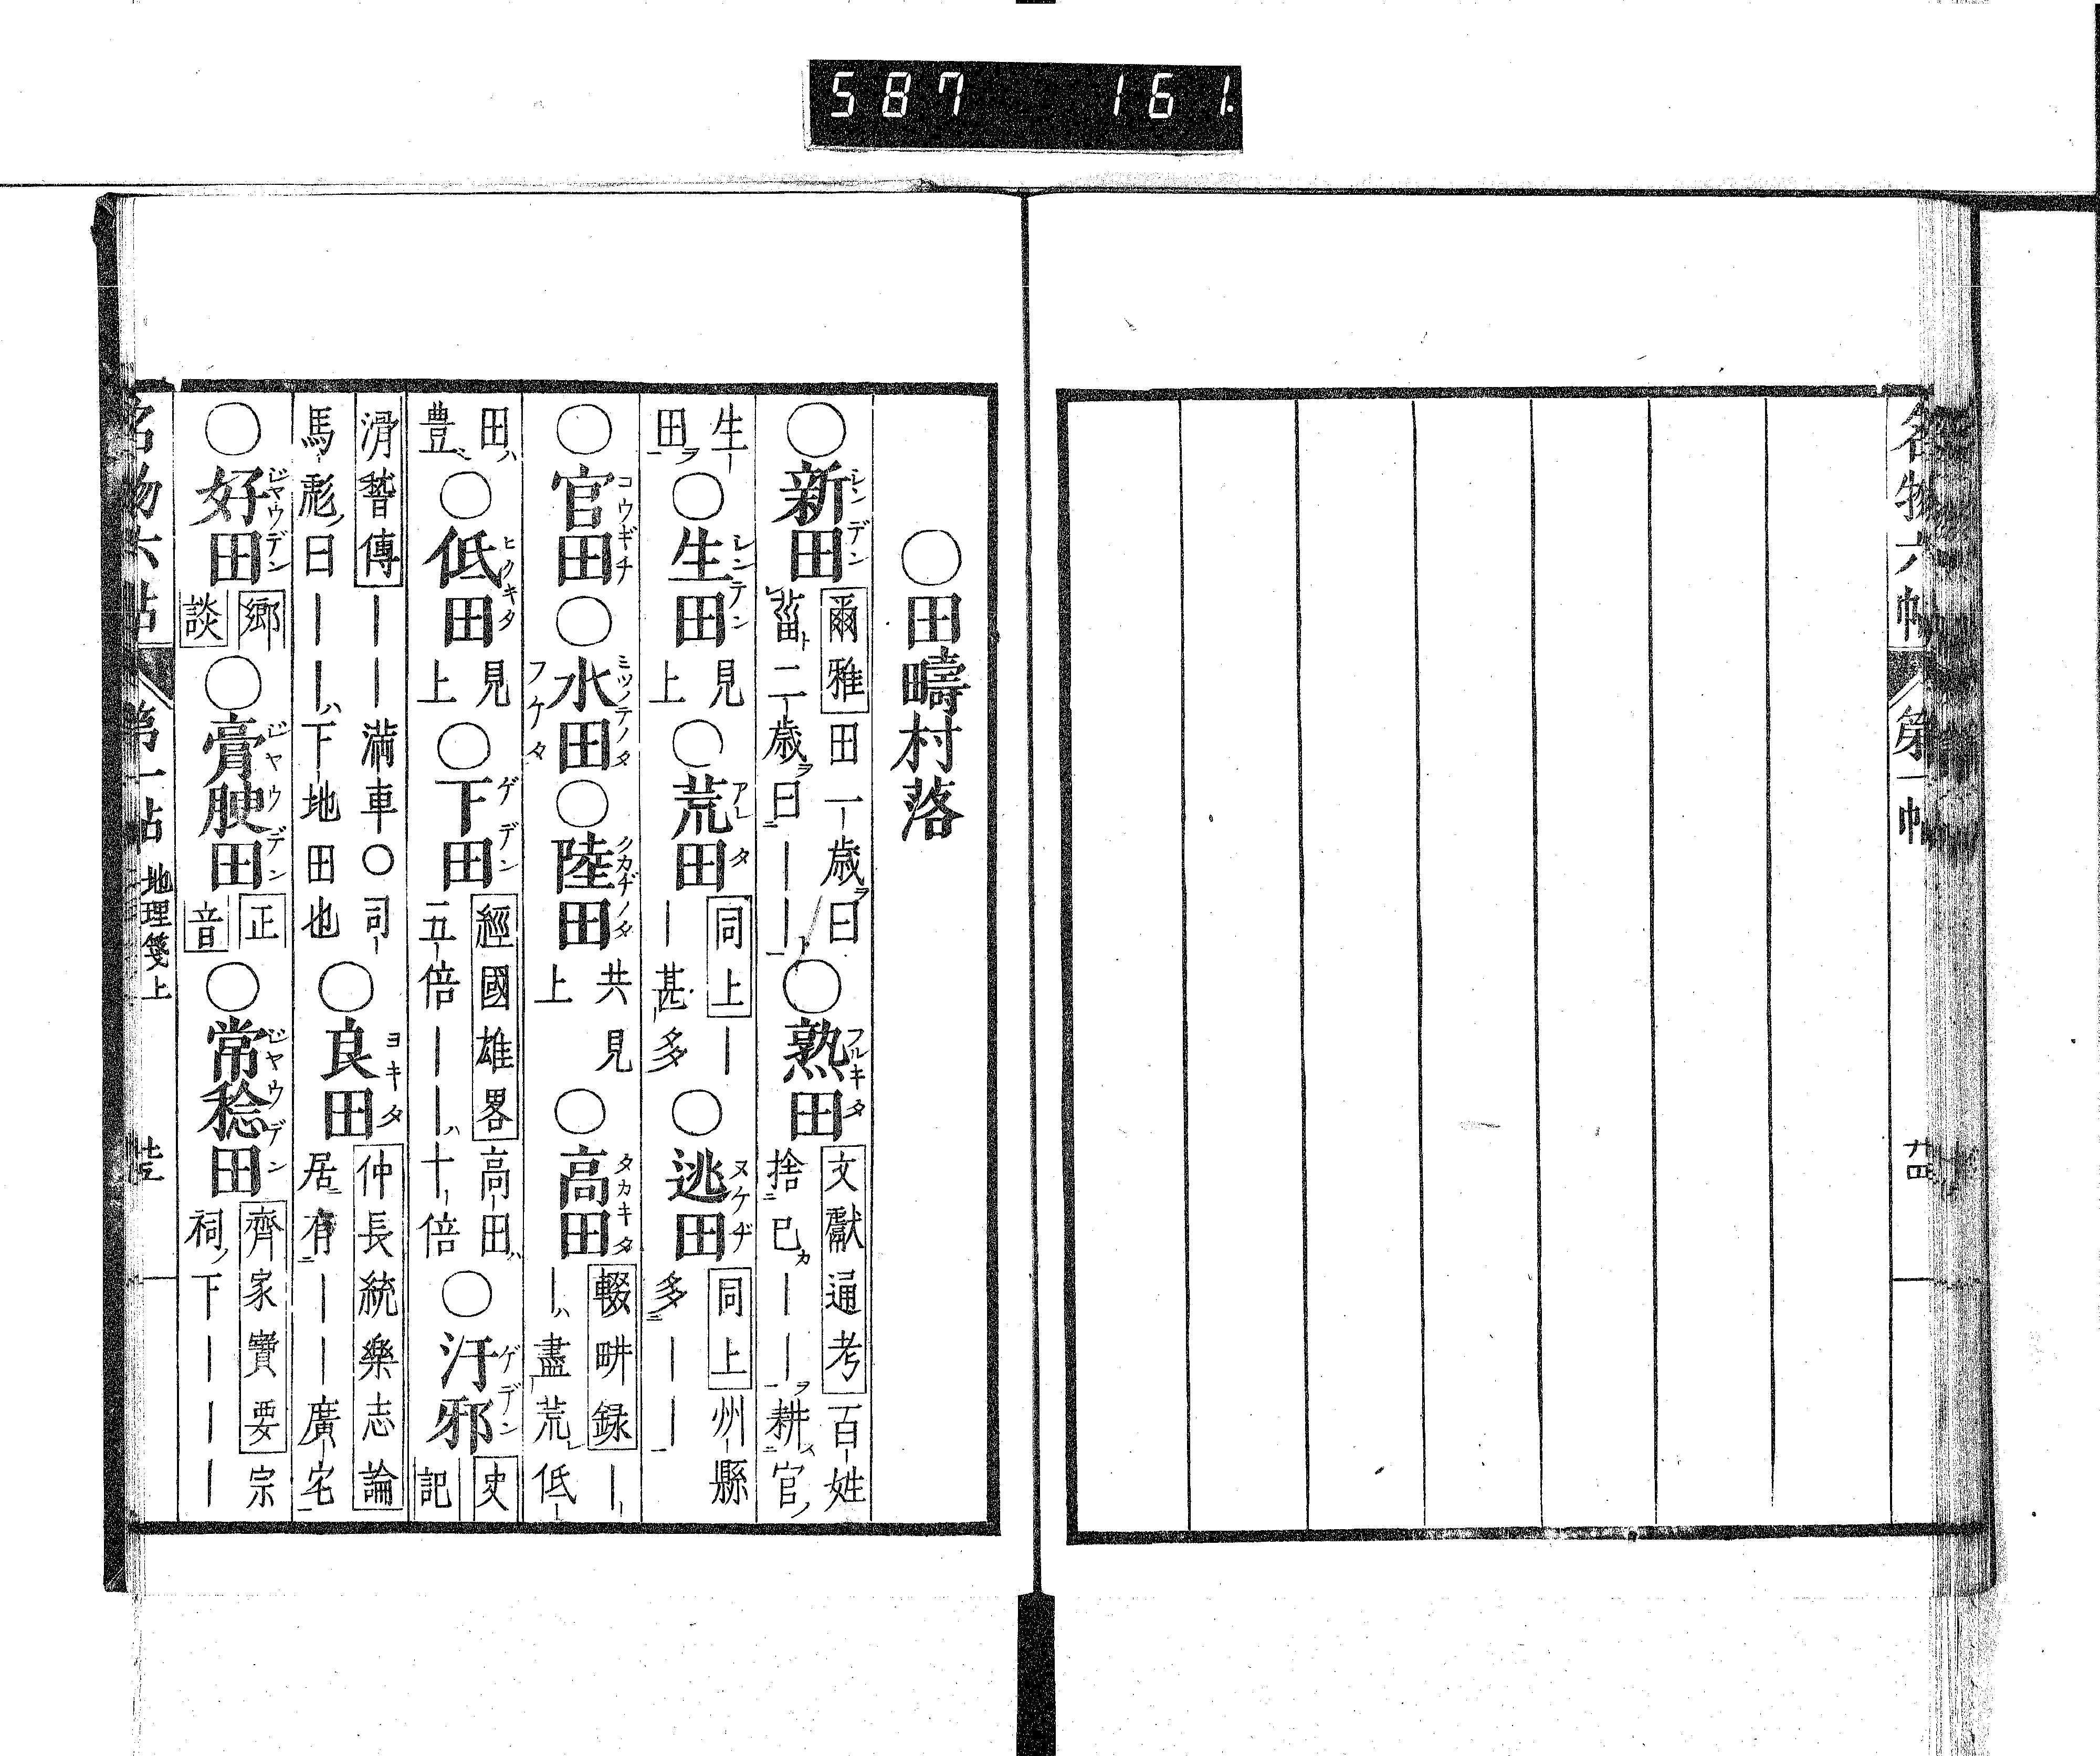 587 161
名物六帖 第一帖 廿四
○田疇村落
○新田 シンデン 爾雅 田一歳ヲ曰
菑ト二歳ヲ曰――ト ○熟田 フルキタ 文獻通考 百姓
捨己カ――ヲ耕官ノ
生
田ヲ ○生田 シンテン 見上 ○荒田 アレタ 同上 ―
―甚多 ○逃田 ヌケヂ 同上 州縣
多――
○官田 コウギチ ○水田 ミヅノテノタ フケタ ○陸田 クカヂノタ 共見上 ○高田 タカキタ 輟畊録 ―
―ハ盡荒低
田ハ
豊 ○低田 ヒクキタ 見上 ○下田 ゲデン 經國雄畧 高田ハ
五倍――ハ十倍 ○汙邪 ゲデン 史記
滑稽傳 ――満車○司
馬彪ノ曰――ハ下地田也 ○良田 ヨキタ 仲長統樂志論
居有――廣宅
○好田 ジヤウデン 鄉談 ○膏腴田 ジヤウデン 正音 ○常稔田 ジヤウデン 齊家寶要 宗
祠ノ下―――
名物六帖 第一帖 地理箋上